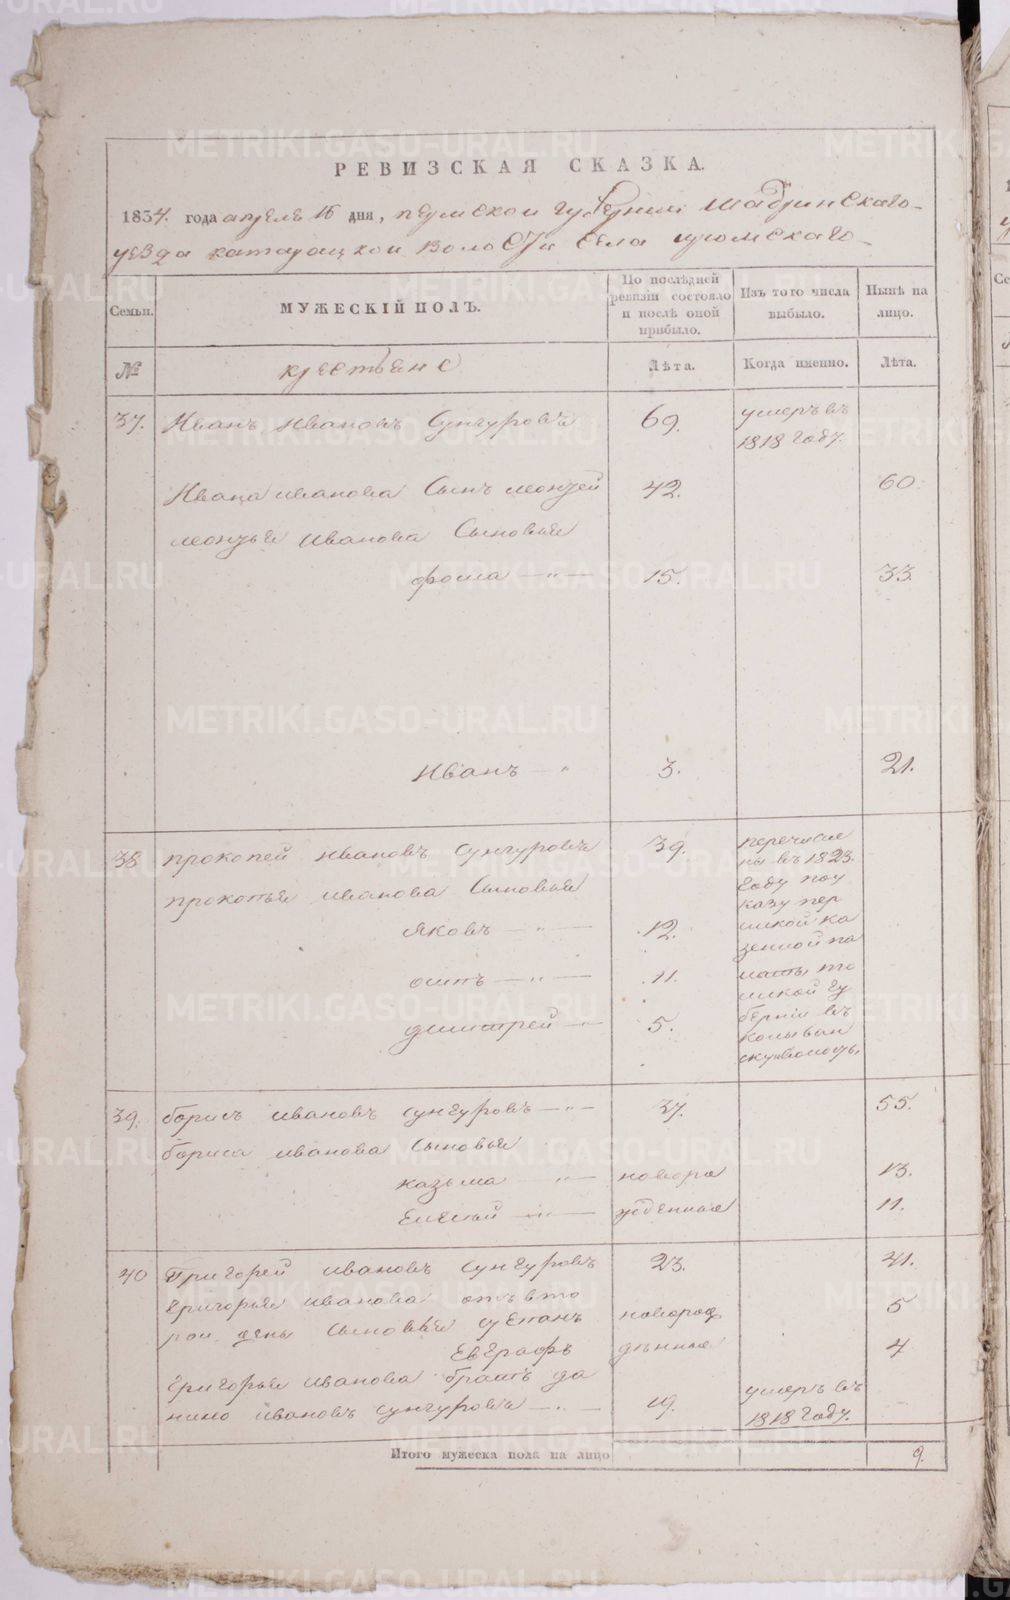 РЕВИЗСКАЯ СКАЗКА.
1834. года апреля 16 дня, пермской губернии Шадринскаго
уезда катайской волости села
Семьи.
МУЖЕСКІЙ ПОЛЪ.
По послѣдней ревизіи состояло и послѣ оной прибыло.
Изъ того числа выбыло.
Нынѣ на лицо.
№
крестьяне
Лѣта.
Когда именно.
Лѣта.
37. Иванъ Ивановъ Сунгуровъ 69. умеръ въ
1818 году.
Ивана иванова Сынъ 42. 60.
иванова Сыновья
фома —"— 15. 33.
Иванъ —" 3. 21.
38 прокопей ивановъ Сунгуровъ 39. перечисле
ны въ 1823.
прокопья иванова Сыновья году по у
казу пер
Яковъ —"— 12. мской ка
зенной па
осипъ —"— 11. латы то
мской гу
димитрей — 5. берніи въ
колыван
скую волость
39. борисъ ивановъ сунгуровъ —"— 37. 55.
бориса иванова Сыновья
казьма —"— новоро 13.
Елесей —"— жденные 11.
40 Григорей ивановъ сунгуровъ 23. 41.
григорья иванова отъ вто
рой жены Сыновья степанъ новорож 5
Евграфъ денные 4
григорья иванова братъ да
нило ивановъ сунгуровъ —"— 19. умеръ въ
1818 году.
Итого мужеска пола на лицо 9.
METRIKI.GASO-URAL.RU